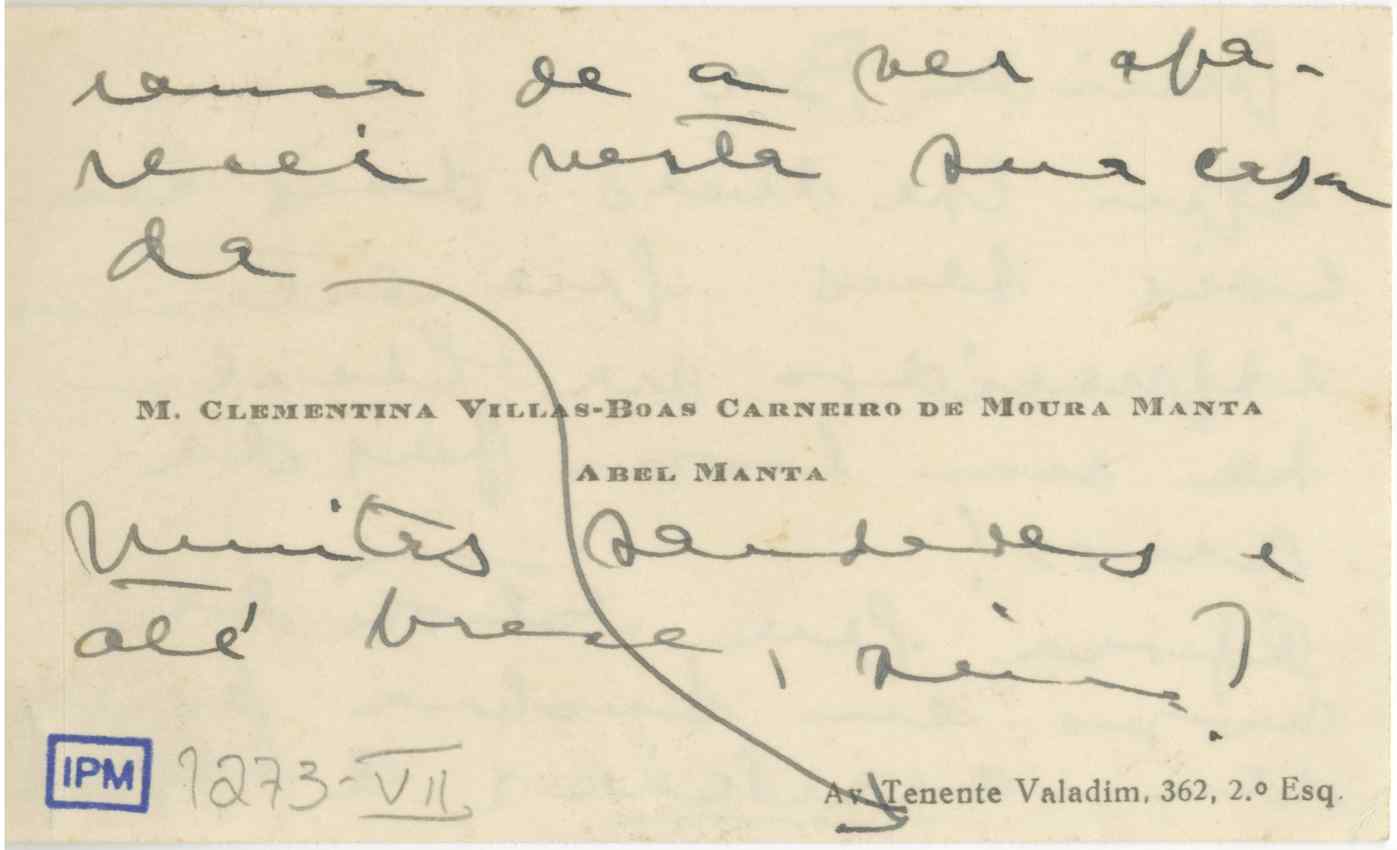 rança de a ver apa-
recer nesta sua casa
da
M. CLEMENTINA VILLAS-BOAS CARNEIRO DE MOURA MANTA
ABEL MANTA
Muitas saudades e
até breve, sim?
IPM 1273-VII
Av. Tenente Valadim, 362, 2.º Esq.